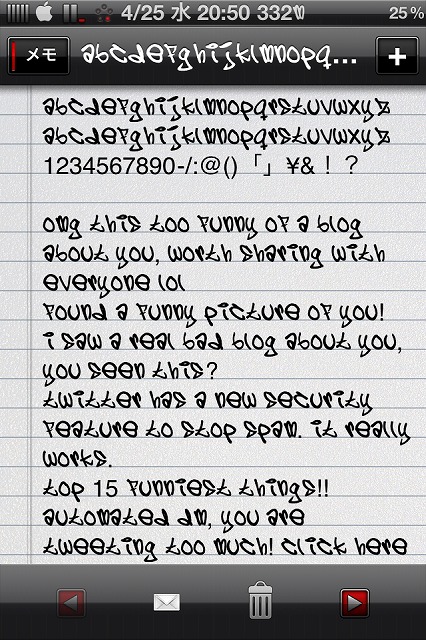 4/25 水 20:50 332M 25%
メモ abcdefghijklmnopq... +
abcdefghijklmnopqrstuvwxyz
abcdefghijklmnopqrstuvwxyz
1234567890-/:@()「」¥&！？
omg this too funny of a blog
about you, worth sharing with
everyone lol
found a funny picture of you!
i saw a real bad blog about you,
you seen this?
twitter has a new security
feature to stop spam. it really
works.
top 15 funniest things!!
automated dm, you are
tweeting too much! click here